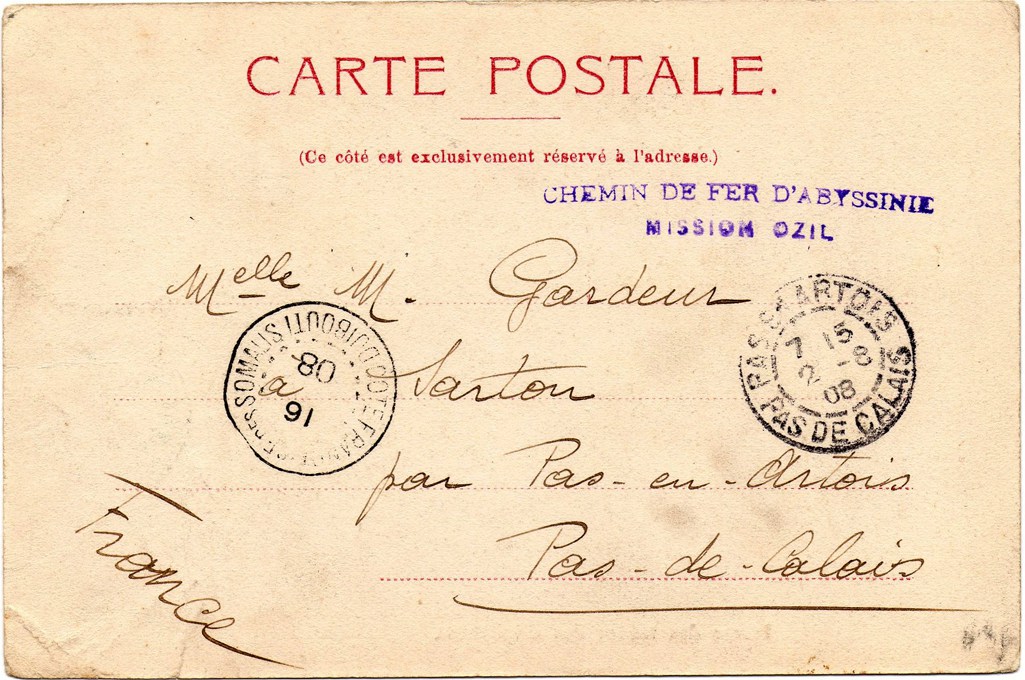 CARTE POSTALE.
(Ce côté est exclusivement réservé à l'adresse.)
CHEMIN DE FER D'ABYSSINIE
MISSION OZIL
Melle M. Gardeur
à Sarton
par Pas-en-Artois
Pas-de-Calais
France
DJIBOUTI
08
16
ARTOIS
7 15
2 -8
08
PAS DE CALAIS